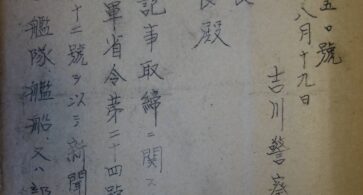 五〇號
八月十九日
吉川警察
長
長殿
記事取締ニ關ス
軍省令第二十四號
十二號ヲ以テ新聞
艦隊、艦船、又ハ部